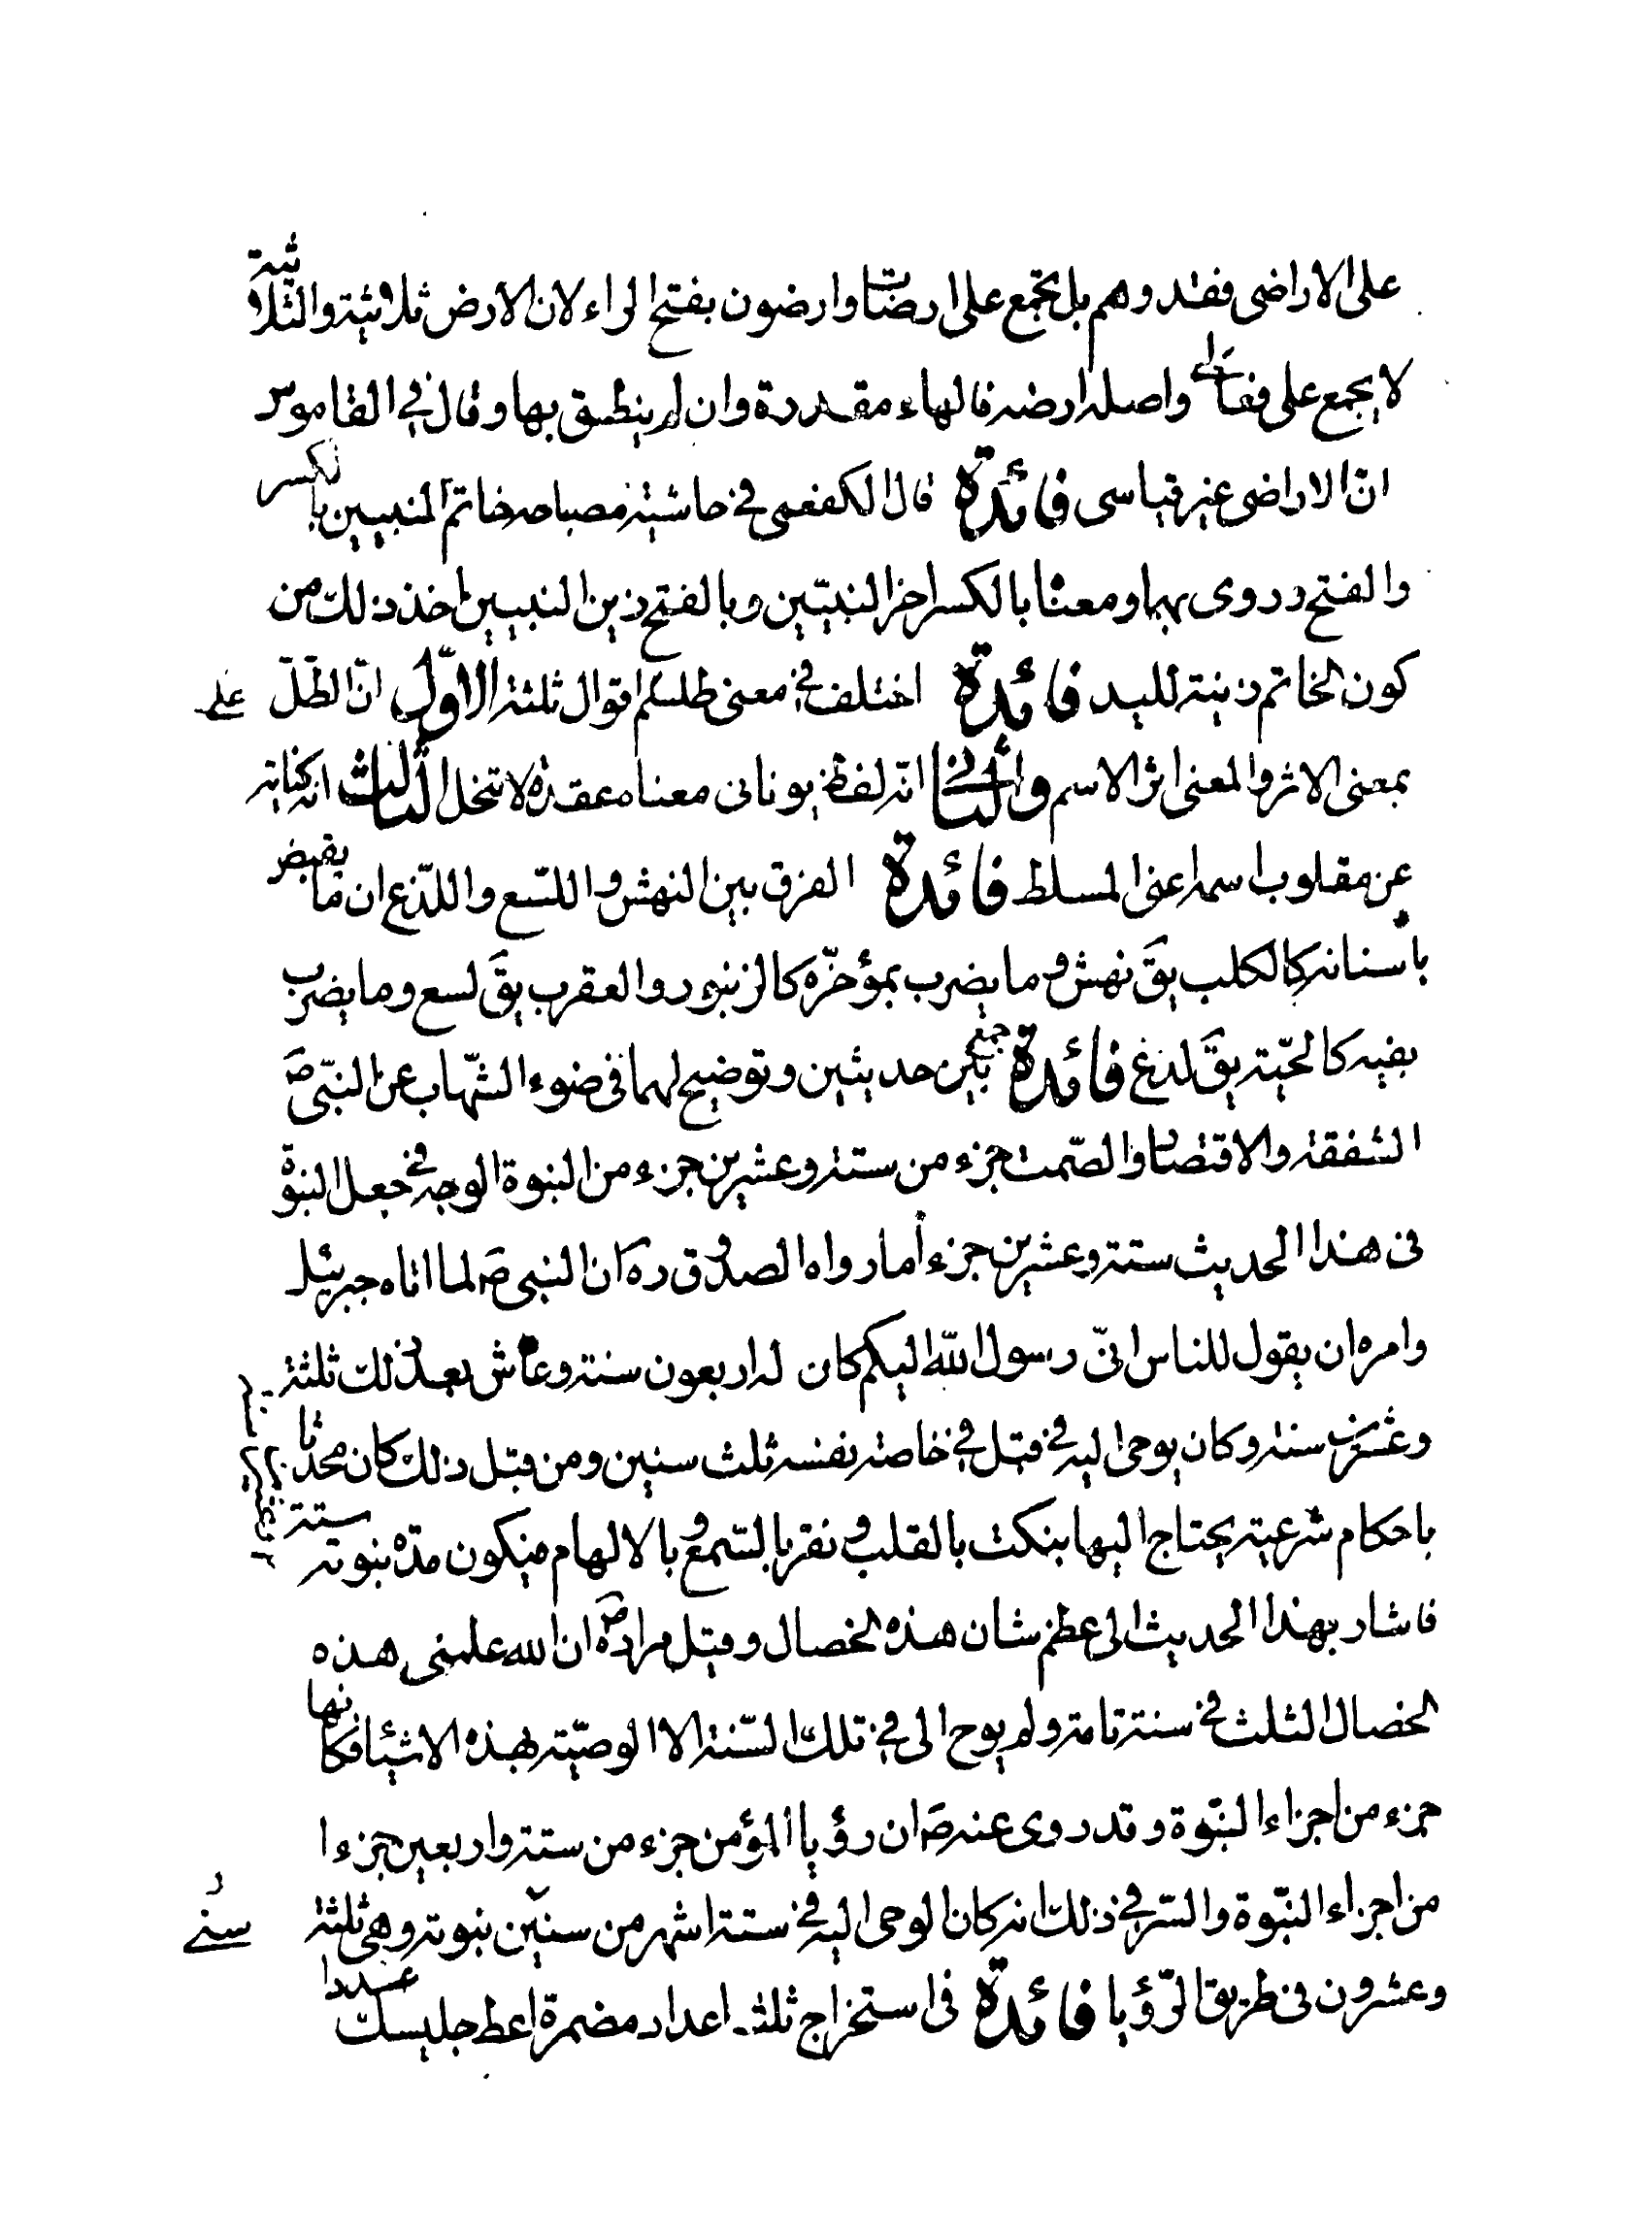 على الاراضى فقد وهم بل يجمع على ارضات وارضون بفتح الراء لان الارض ثلاثية والثلاثية
لا يجمع على فعالى واصله ارضه فالهاء مقدرة وان لم ينطق بها وقال في القاموس
انّ الاراضى غير قياسى فائدة قال الكفعمى في حاشية مصباحه خاتم النبيين بالكسر
والفتح وروى بهما ومعنا بالكسر اخر النبيّين وبالفتح زين النبيين اخذ ذلك من
كون الخاتم زينة لليد فائدة اختلف في معنى طلسم اقوال ثلثة الاوّل انّ الطّلّ
بمعنى الاثر والمعنى اثر الاسم والثانى انّه لفظ يونانى معناه عقدة لا تنحل الثالث انه كناية
عن مقلوب اسمه اعنى المسلط فائدة الفرق بين النهش واللسّع واللّذع ان ما يقبض
باسنانه كالكلب يقَ نهش وما يضرب بمؤخّره كالزنبور والعقرب يقَ لسع وما يضرب
بفيه كالحيّة يقَ لدغ فائدة جمع بين حديثين وتوضيح لهما في ضوء الشّهاب عن النبّى صَ
الشفقة والاقتصاد والصّمت جزء من ستة وعشرين جزء من النبوة الوجه في جعل النبوة
فى هذا الحديث ستة وعشرين جزء أما رواه الصدوق ره ان النبى صَ لما اتاه جبرئيل
وامره ان يقول للناس انىّ رسول اللّه اليكم كان له اربعون سنة وعاش بعد ذلك ثلثة
وعشرين سنة وكان يوحى اليه في قبل في خاصة نفسه ثلث سنين ومن قبل ذلك كان محدثا
باحكام شرعية يحتاج اليها بنكت بالقلب ونقر بالسّمع وبالالهام فيكون مدّة نبوته ستة
فاشار بهذا الحديث الى عظم شان هذه الخصال وقيل مراده صَ ان الله علمنى هذه
الخصال الثلث في سنة تامة ولم يوح الى في تلك السّنة الا الوصيّة بهذه الاشيٰا فكانها
جزء من اجزاء النبّوة وقد روى عنه صَ ان رؤيا المؤمن جزء من ستة واربعين جزءا
من اجزاء النبّوة والسّر في ذلك انه كان الوحى اليه في ستة اشهر من سنين نبوته وهى ثلثة
وعشرون فى طريق الرّؤيا فائدة فى استخراج ثلث اعداد مضمرة اعط جليسك عددا